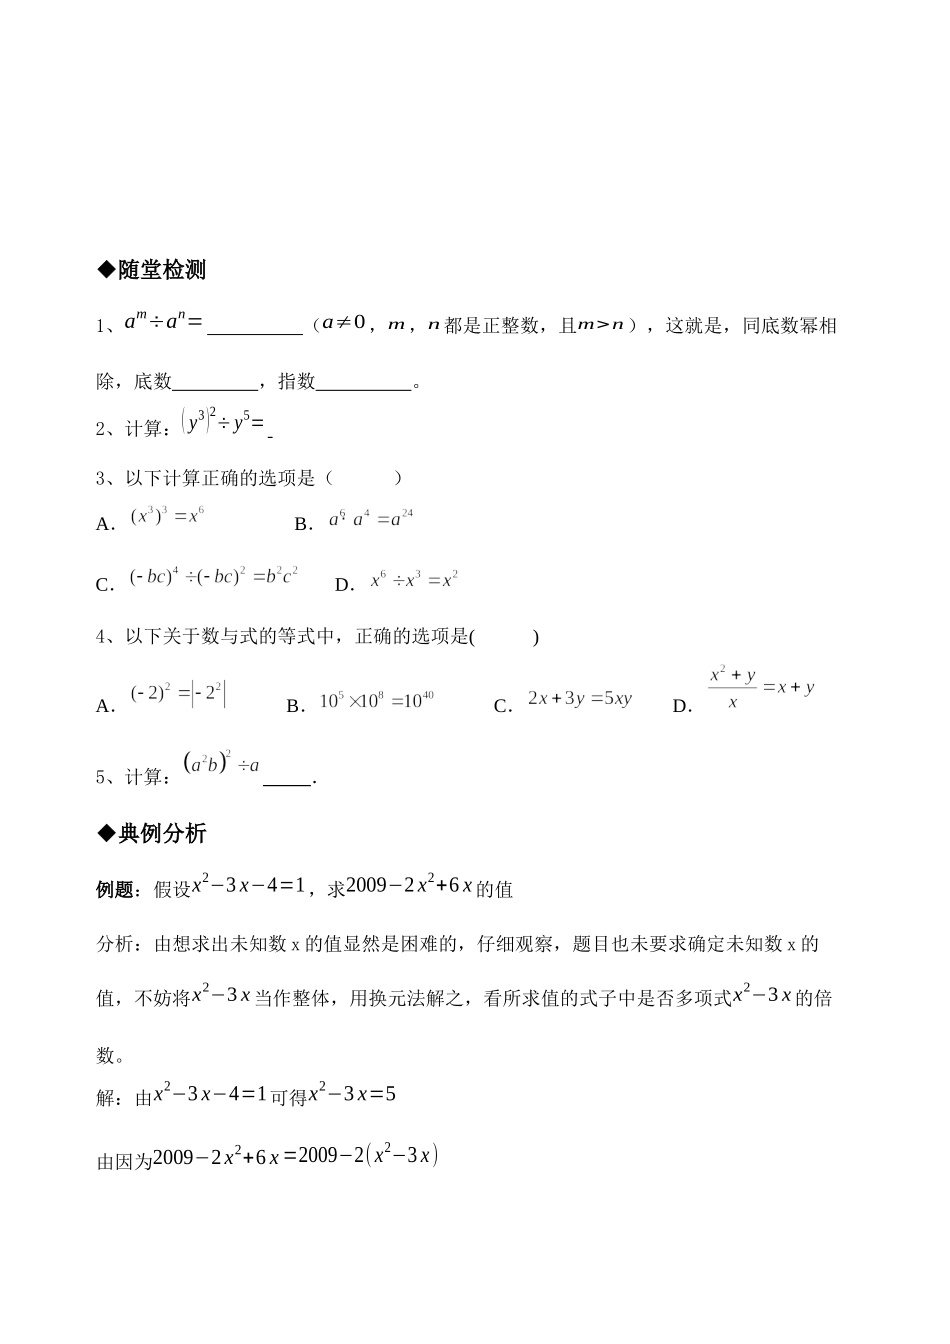 ◆随堂检测
1、a^m÷a^n=__________（a≠0，m，n都是正整数，且m>n），这就是，同底数幂相
除，底数_________，指数__________。
2、计算：(y^3)^2÷y^5=_
3、以下计算正确的选项是（　　　）
A．(x^3)^3=x^6　　B．a^6·a^4=a^24
C．(-bc)^4÷(-bc)^2=b^2c^2　　D．x^6÷x^3=x^2
4、以下关于数与式的等式中，正确的选项是(　　　)
A．(-2)^2=|-2^2|　　B．10^5×10^8=10^40　　C．2x+3y=5xy　　D．(x^2+y)/x=x+y
5、计算：(a^2b)^2÷a_____．
◆典例分析
例题：假设x^2−3x−4=1，求2009−2x^2+6x的值
分析：由想求出未知数 x 的值显然是困难的，仔细观察，题目也未要求确定未知数 x 的
值，不妨将x^2−3x当作整体，用换元法解之，看所求值的式子中是否多项式x^2−3x的倍
数。
解：由x^2−3x−4=1可得x^2−3x=5
由因为2009−2x^2+6x=2009−2(x^2−3x)